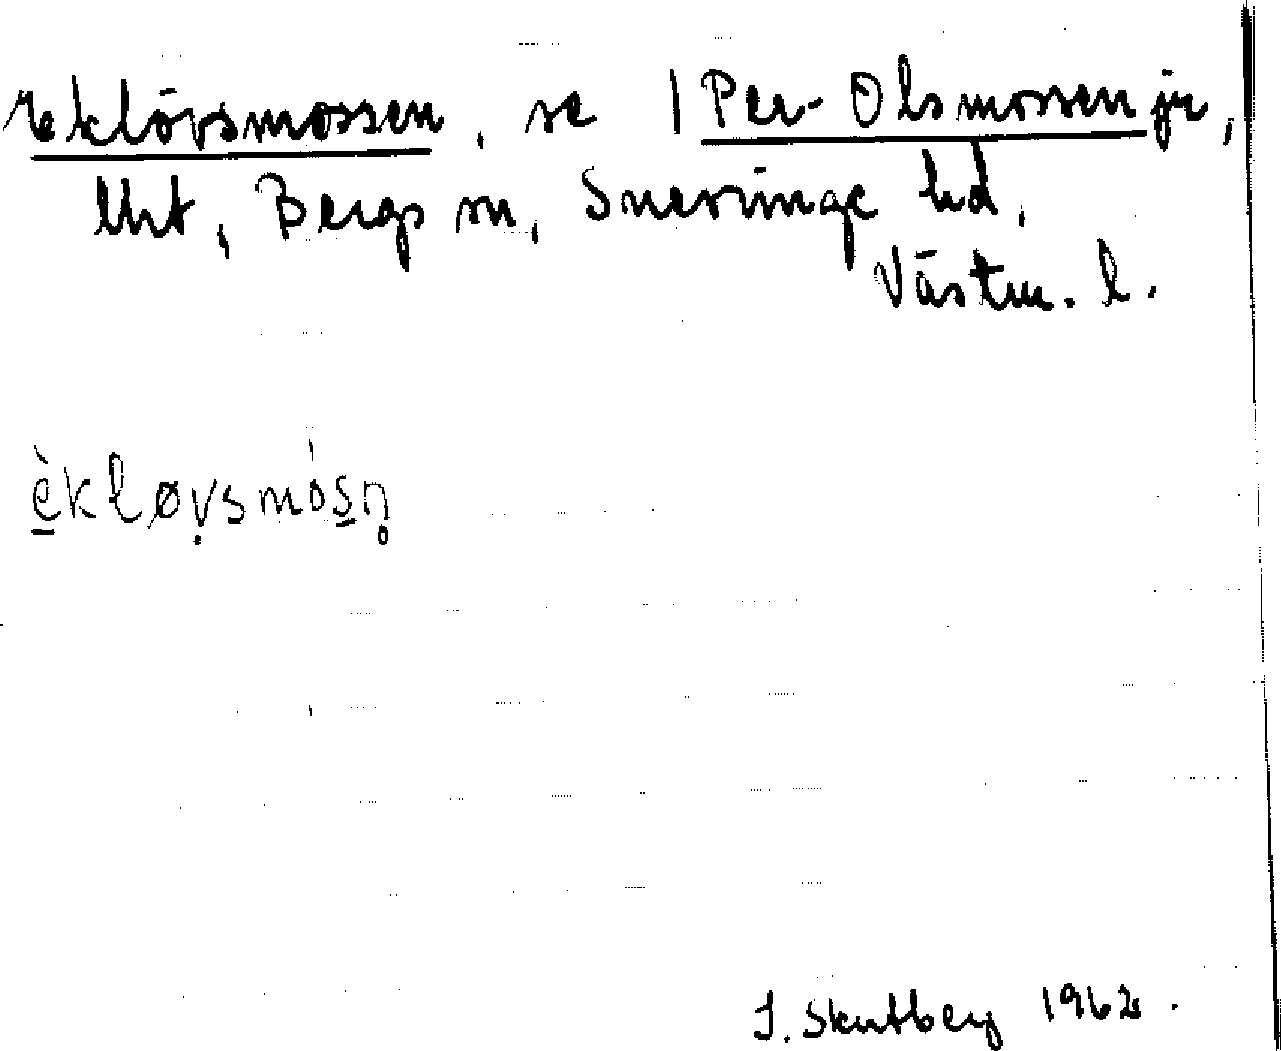 Eklövsmossen, se 1 Per-Olsmossen jr,
Bergs sn, Snevringe hd,
Västm. l.
èkløvsmósn̥
J. Skutberg 1962.